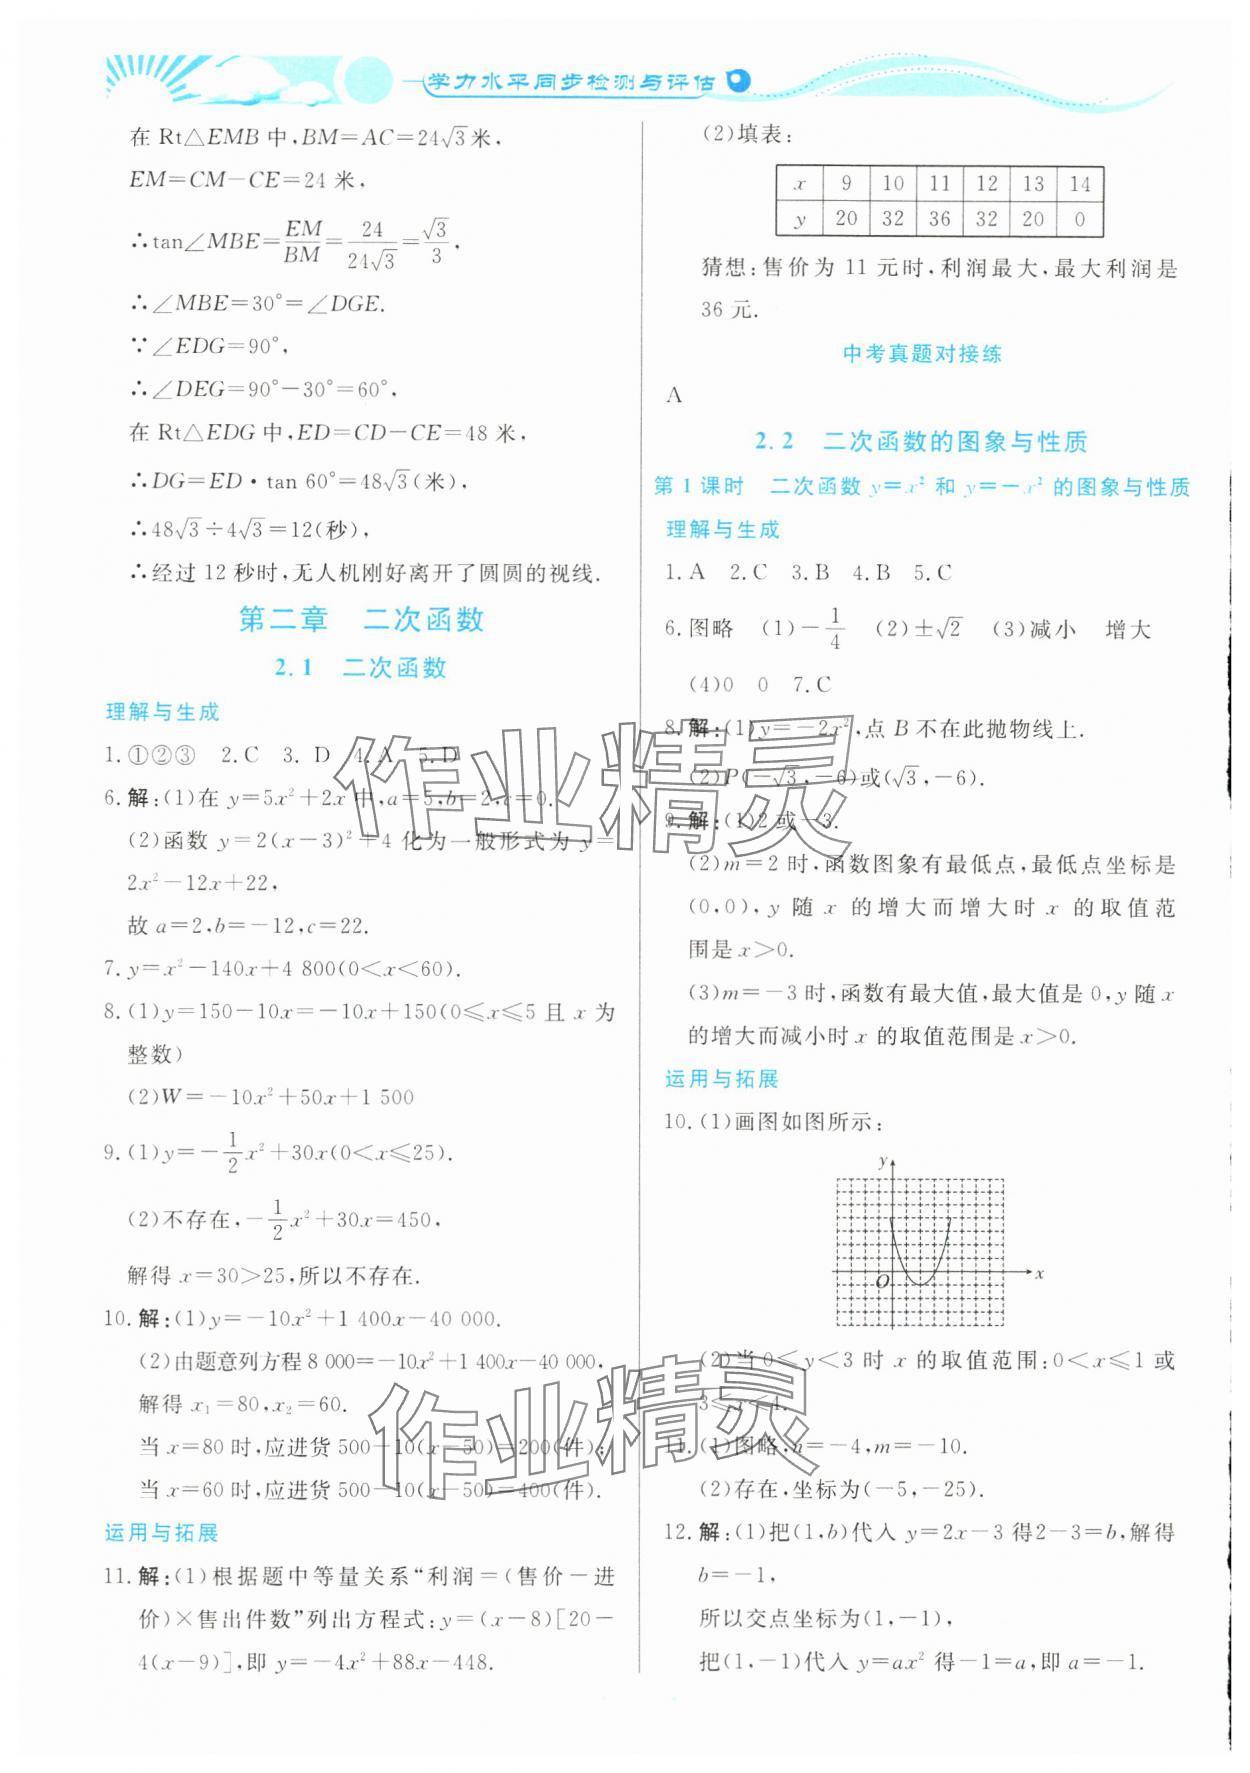 学力水平同步检测与评估
在 Rt△EMB 中,BM=AC=24√3米,
EM=CM-CE=24 米,
∴tan∠MBE=EM/BM=24/24√3=√3/3,
∴∠MBE=30°=∠DGE.
∵∠EDG=90°,
∴∠DEG=90°-30°=60°,
在 Rt△EDG 中,ED=CD-CE=48 米,
∴DG=ED·tan 60°=48√3(米),
∴48√3÷4√3=12(秒),
∴经过 12 秒时,无人机刚好离开了圆圆的视线.
第二章 二次函数
2.1 二次函数
理解与生成
1.①②③ 2.C 3. D 4.A 5.D
6.解:(1)在 y=5x²+2x 中,a=5,b=2,c=0.
(2)函数 y=2(x-3)²+4 化为一般形式为 y=
2x²-12x+22,
故 a=2,b=-12,c=22.
7.y=x²-140x+4 800(0<x<60).
8.(1)y=150-10x=-10x+150(0≤x≤5 且 x 为
整数)
(2)W=-10x²+50x+1 500
9.(1)y=-1/2x²+30x(0<x≤25).
(2)不存在,-1/2x²+30x=450,
解得 x=30>25,所以不存在.
10.解:(1)y=-10x²+1 400x-40 000.
(2)由题意列方程 8 000=-10x²+1 400x-40 000,
解得 x₁=80,x₂=60.
当 x=80 时,应进货 500-10(x-50)=200(件);
当 x=60 时,应进货 500-10(x-50)=400(件).
运用与拓展
11.解:(1)根据题中等量关系“利润=(售价-进
价)×售出件数”列出方程式:y=(x-8)[20-
4(x-9)],即 y=-4x²+88x-448.
(2)填表:
x 9 10 11 12 13 14
y 20 32 36 32 20 0
猜想:售价为 11 元时,利润最大,最大利润是
36 元.
中考真题对接练
A
2.2 二次函数的图象与性质
第 1 课时 二次函数 y=x² 和 y=-x² 的图象与性质
理解与生成
1.A 2.C 3.B 4.B 5.C
6.图略 (1)-1/4 (2)±√2 (3)减小 增大
(4)0 0 7.C
8.解:(1)y=-2x²,点 B 不在此抛物线上.
(2)P(-√3,-6)或(√3,-6).
9.解:(1)2 或-3.
(2)m=2 时,函数图象有最低点,最低点坐标是
(0,0),y 随 x 的增大而增大时 x 的取值范
围是 x>0.
(3)m=-3 时,函数有最大值,最大值是 0,y 随 x
的增大而减小时 x 的取值范围是 x>0.
运用与拓展
10.(1)画图如图所示:
y
O
x
(2)当 0≤y<3 时 x 的取值范围:0<x≤1 或
3≤x≤4.
11.(1)图略,n=-4,m=-10.
(2)存在,坐标为(-5,-25).
12.解:(1)把(1,b)代入 y=2x-3 得2-3=b,解得
b=-1,
所以交点坐标为(1,-1),
把(1,-1)代入 y=ax² 得-1=a,即 a=-1.
作业精灵
作业精灵